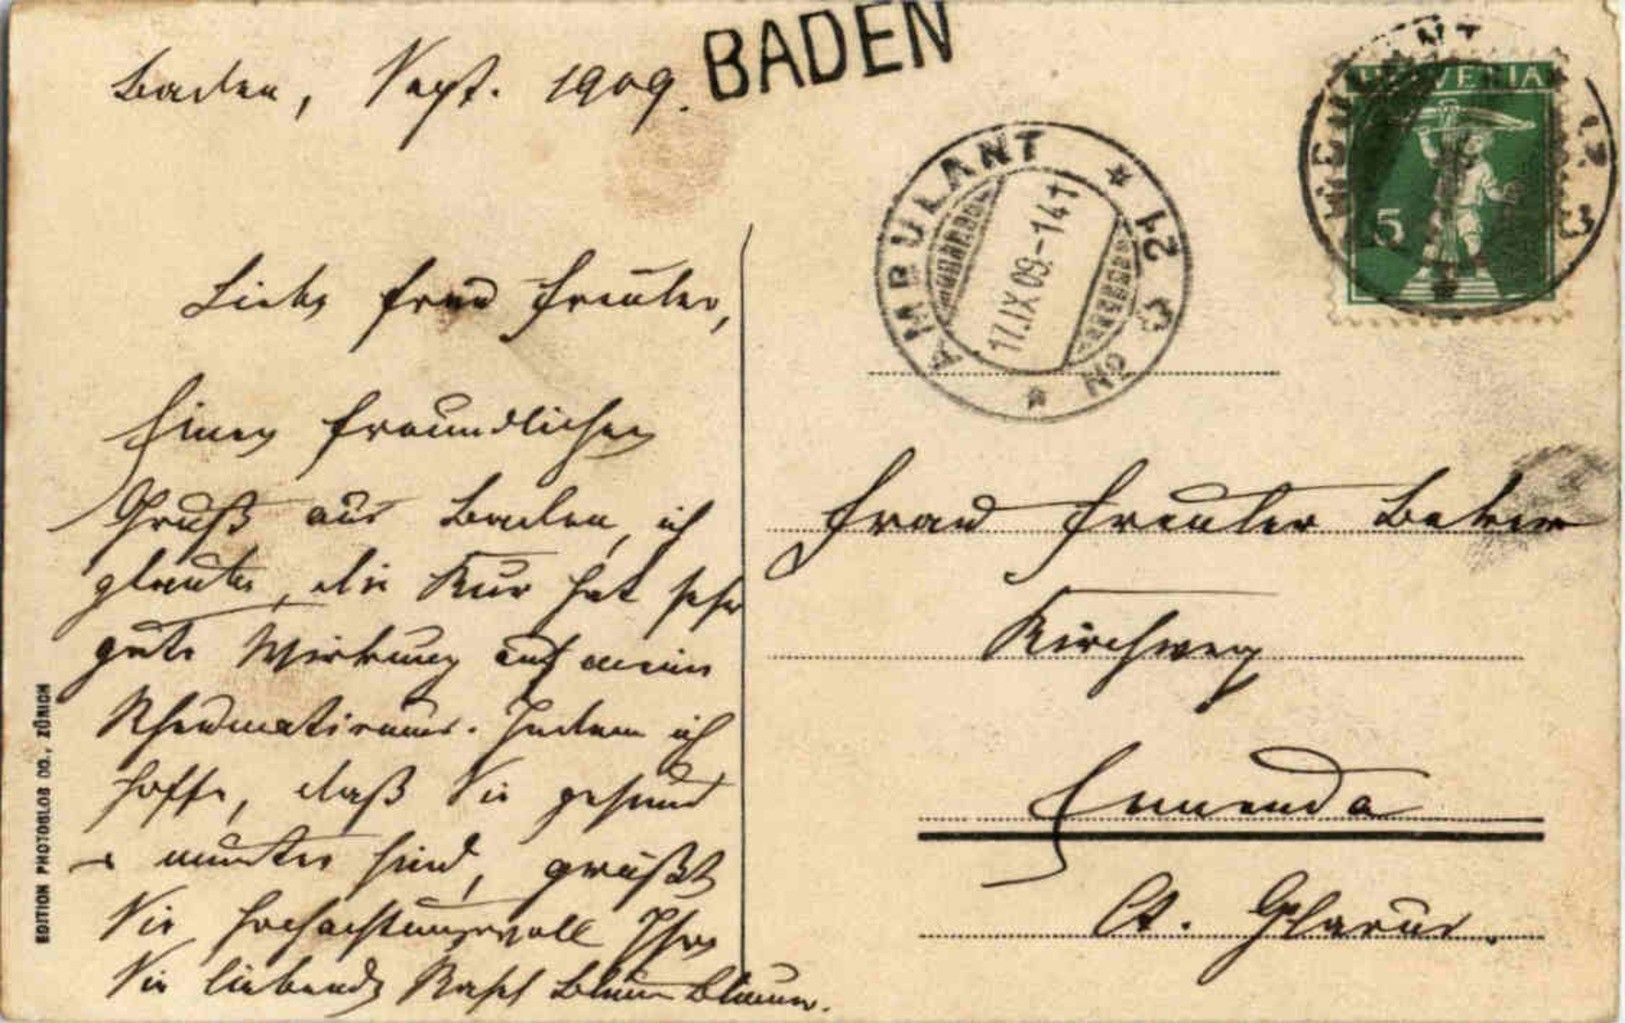 Baden, Sept. 1909.
BADEN
HELVETIA
5
AMBULANT
No 21
17.IX 09.-14
Liebe Frau Freuler,
Einen freundlichen
Gruß aus Baden, ich
glaube, die Kur hat sehr
gute Wirkung auf meine
Rheumatismus. Indem ich
hoffe, daß Sie gesund
u munter sind, grüßt
Sie hochachtungsvoll Ihre
Sie liebende
Frau Freuler
Kirchweg
Ennenda
Ct. Glarus.
EDITION PHOTOGLOB CO., ZÜRICH